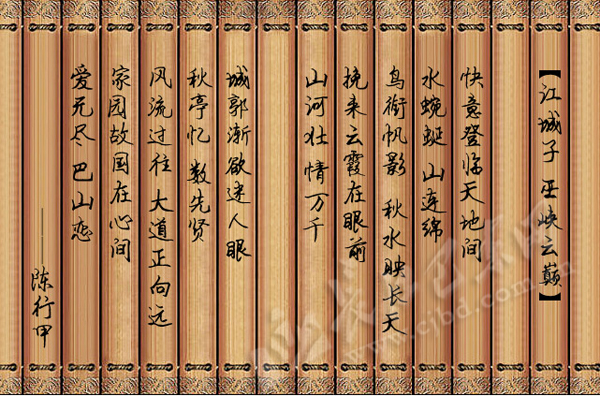 【江城子 巫峡云巅】
快意登临天地间
水蜿蜒 山连绵
鸟衔帆影 秋水映长天
挽来云霞在眼前
山河壮情万千
城郭渐欲迷人眼
秋亭忆 数先贤
风流过往 大道正向远
家园故国在心间
爱无尽 巴山恋
——陈行甲
www.cjbd.com.cn